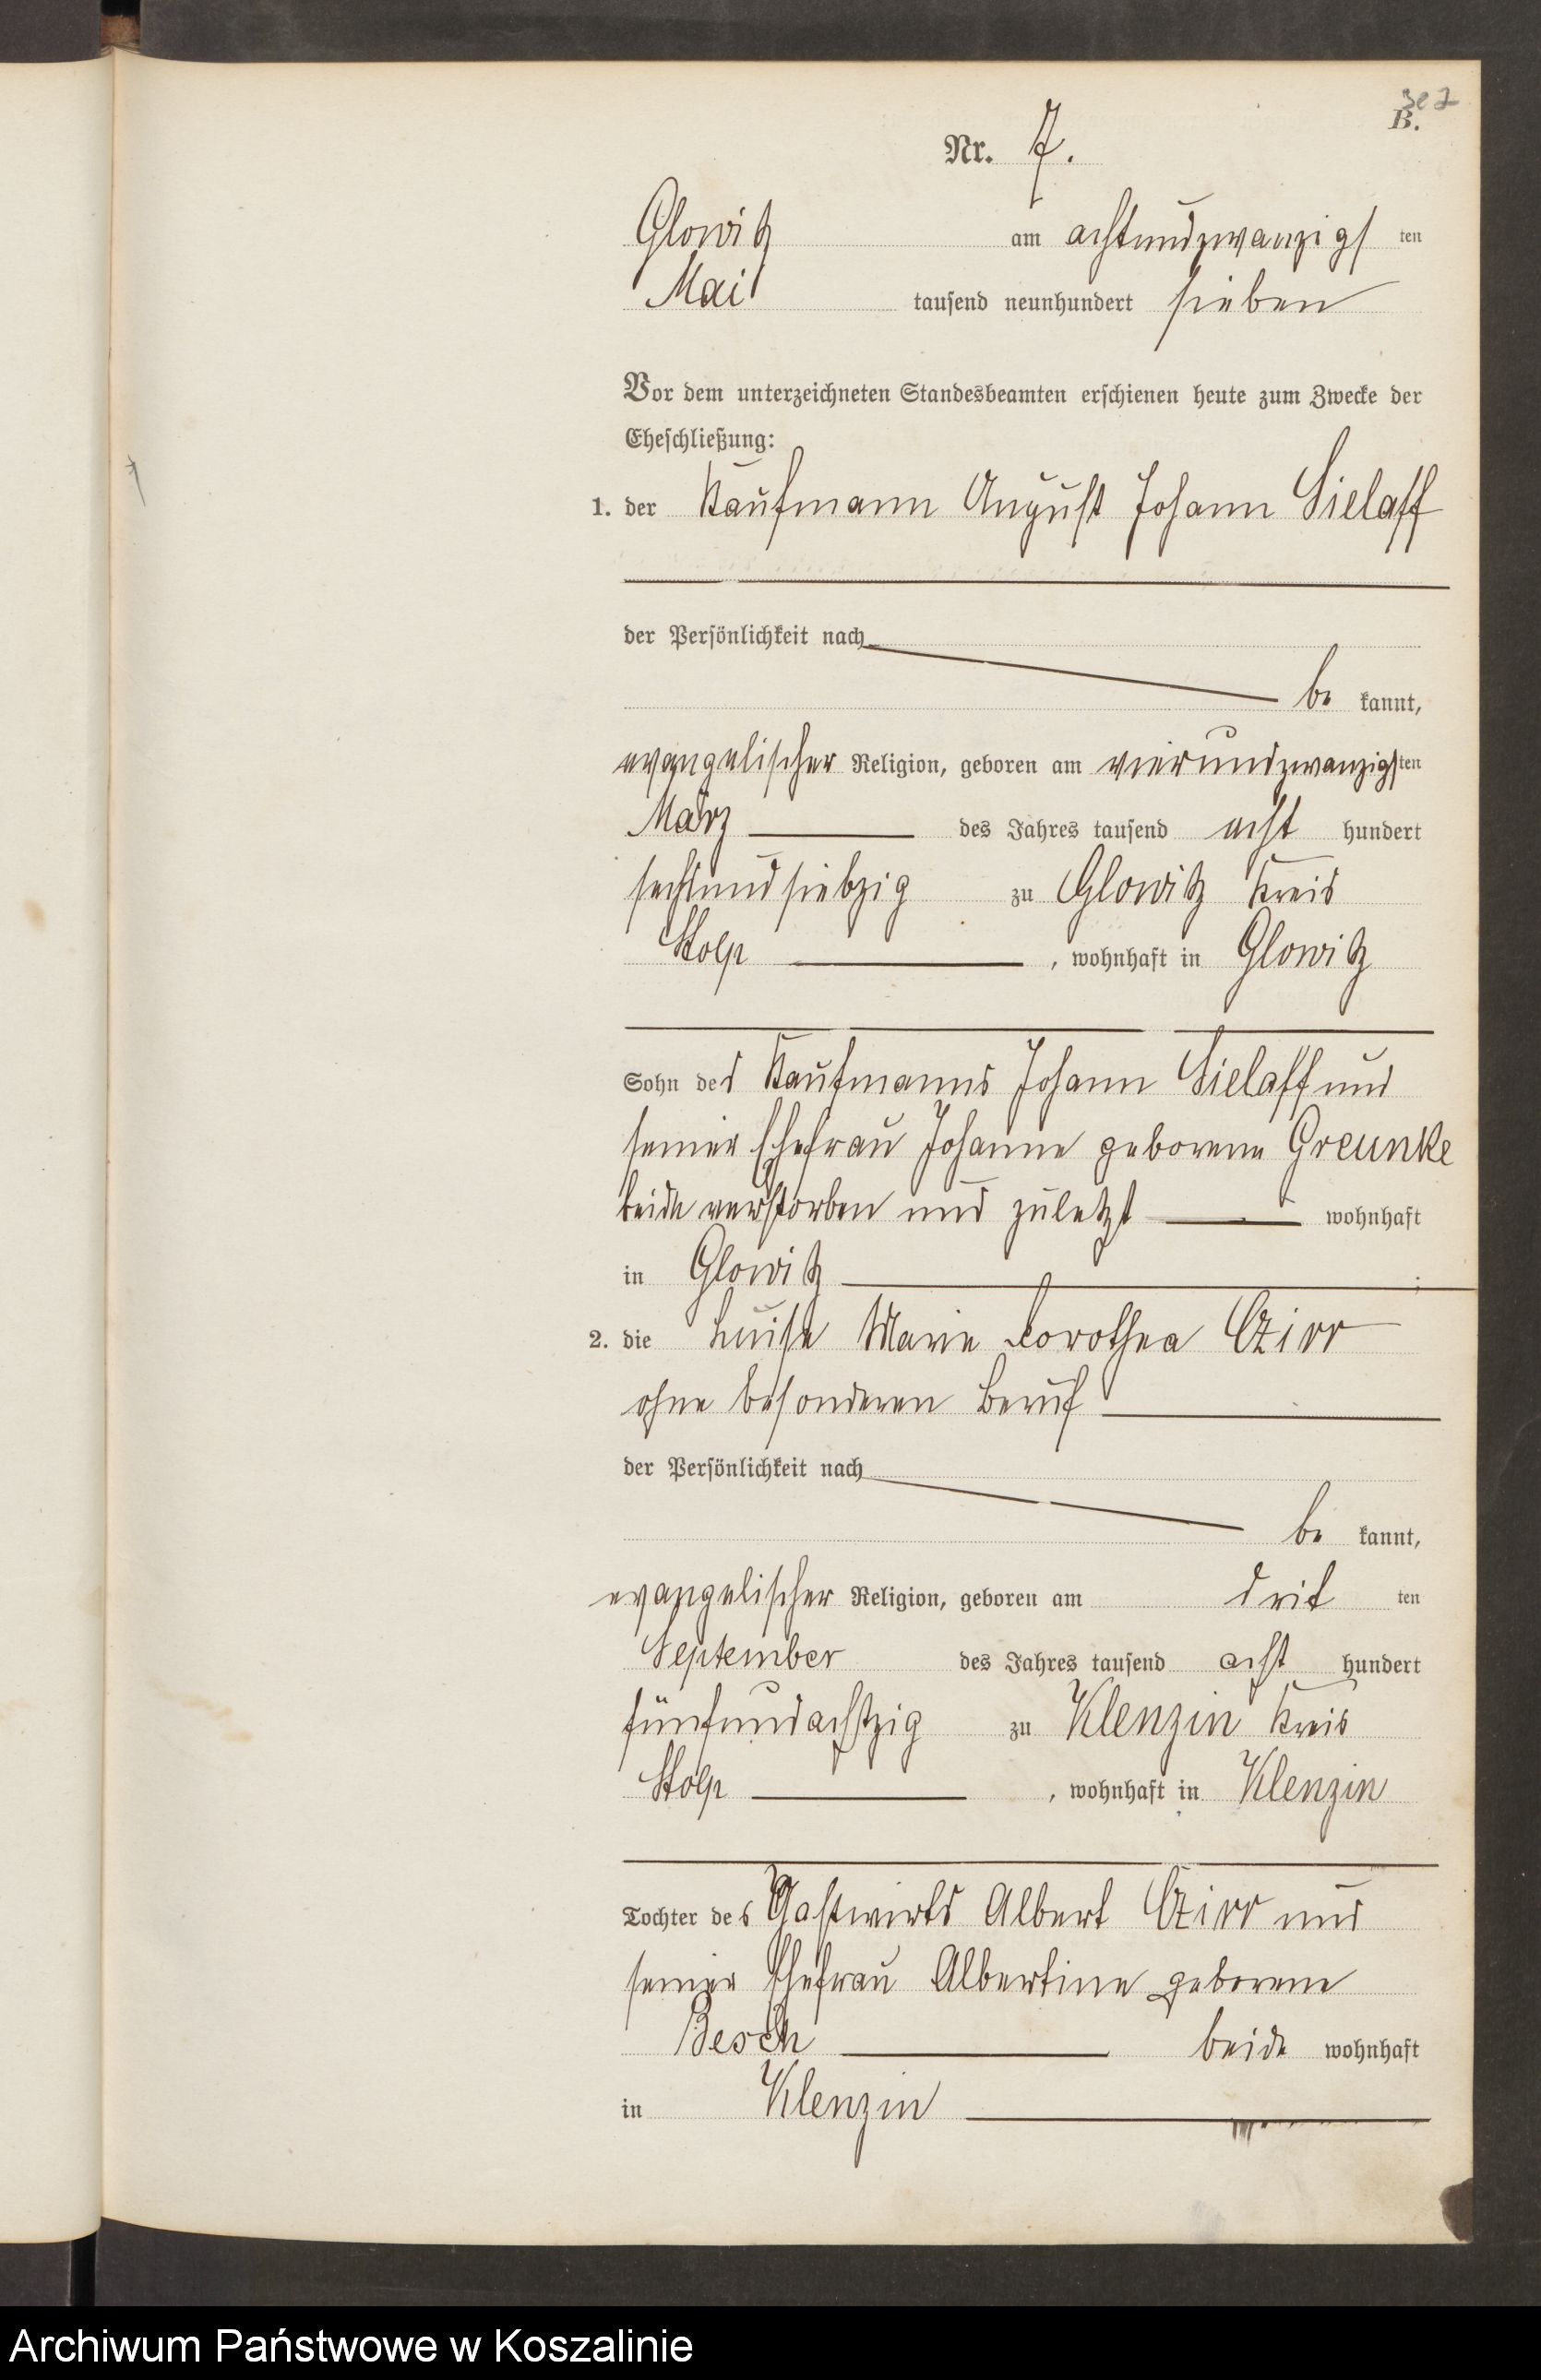 B.
Nr. 7.
Glowitz am achtundzwanzigsten
Mai tausend neunhundert sieben
Vor dem unterzeichneten Standesbeamten erschienen heute zum Zwecke der
Eheschließung:
1. der Kaufmann August Johann Sielaff
der Persönlichkeit nach
be kannt,
evangelischer Religion, geboren am vierundzwanzigsten
März des Jahres tausend acht hundert
sechsundsiebzig zu Glowitz Kreis
Stolp , wohnhaft in Glowitz
Sohn des Kaufmanns Johann Sielaff und
seiner Ehefrau Johanne geborene Greunke
beide verstorben und zuletzt wohnhaft
in Glowitz ;
2. die Luise Marie Dorothea Czirr
ohne besonderen Beruf
der Persönlichkeit nach
be kannt,
evangelischer Religion, geboren am drit ten
September des Jahres tausend acht hundert
fünfundachtzig zu Klenzin Kreis
Stolp , wohnhaft in Klenzin
Tochter des Gastwirts Albert Czirr und
seiner Ehefrau Albertine geborene
Besch beide wohnhaft
in Klenzin
Archiwum Państwowe w Koszalinie